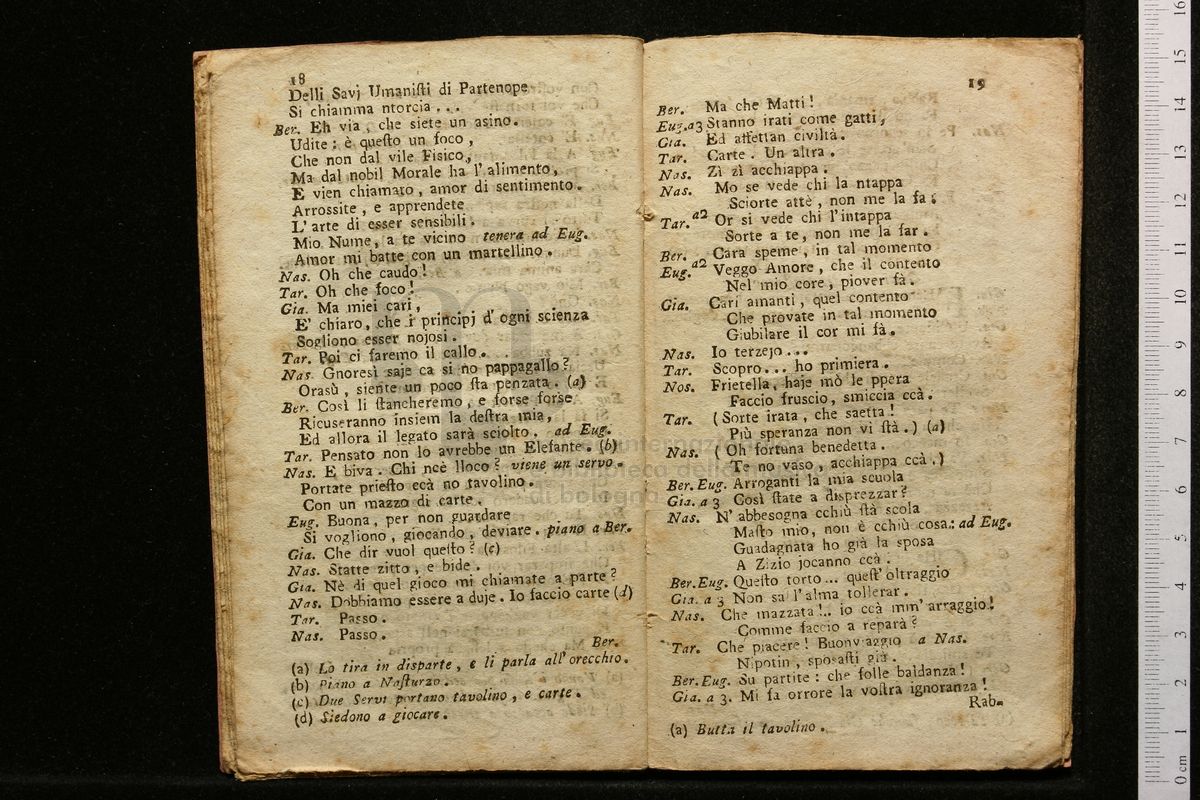 18
Delli Savj Umanisti di Partenope
Si chiamma ntorcia ...
Ber. Eh via, che siete un asino.
Udite: è questo un foco,
Che non dal vile Fisico,
Ma dal nobil Morale ha l'alimento,
E vien chiamato, amor di sentimento.
Arrossite, e apprendete
L'arte di esser sensibili.
Mio Nume, a te vicino tenera ad Eug.
Amor mi batte con un martellino.
Nas. Oh che caudo!
Tar. Oh che foco!
Gia. Ma miei cari,
E' chiaro, che i principj d'ogni scienza
Sogliono esser nojosi.
Tar. Poi ci faremo il callo.
Nas. Gnoresì saje ca si no pappagallo?
Orasù, siente un poco sta penzata. (a)
Ber. Così li stancheremo, e forse forse
Ricuseranno insiem la destra mia,
Ed allora il legato sarà sciolto. ad Eug.
Tar. Pensato non lo avrebbe un Elefante. (b)
Nas. E biva. Chi ncè lloco? viene un servo.
Portate priesto ccà no tavolino.
Con un mazzo di carte.
Eug. Buona, per non guardare
Si vogliono, giocando, deviare. piano a Ber.
Gia. Che dir vuol questo? (c)
Nas. Statte zitto, e bide.
Gia. Nè di quel gioco mi chiamate a parte?
Nas. Dobbiamo essere a duje. Io faccio carte (d)
Tar. Passo.
Nas. Passo.
Ber.
(a) Lo tira in disparte, e li parla all'orecchio.
(b) Piano a Nasturzo.
(c) Due Servi portano tavolino, e carte.
(d) Siedono a giocare.
19
Ber. Ma che Matti!
Eug. a3 Stanno irati come gatti,
Gia. Ed affettan civiltà.
Tar. Carte. Un altra.
Nas. Zì zì acchiappa.
Nas. Mo se vede chi la ntappa
Sciorte attè, non me la fa.
Tar. a2 Or si vede chi l'intappa
Sorte a te, non me la far.
Ber. Cara speme, in tal momento
Eug. a2 Veggo Amore, che il contento
Nel mio core, piover fà.
Gia. Cari amanti, quel contento
Che provate in tal momento
Giubilare il cor mi fà.
Nas. Io terzejo...
Tar. Scopro... ho primiera.
Nos. Frietella, haje mò le ppera
Faccio fruscio, smiccia ccà.
Tar. (Sorte irata, che saetta!
Più speranza non vi stà.) (a)
Nas. (Oh fortuna benedetta.
Te no vaso, acchiappa ccà.)
Ber. Eug. Arroganti la mia scuola
Gia. a 3 Così state a disprezzar?
Nas. N'abbesogna cchiù stà scola
Masto mio, non è cchiù cosa: ad Eug.
Guadagnata ho già la sposa
A Zizio jocanno ccà.
Ber. Eug. Questo torto... quest'oltraggio
Gia. a 3 Non sa l'alma tollerar.
Nas. Che mazzata!.. io ccà mm'arraggio!
Comme faccio a reparà?
Tar. Che piacere! Buonviaggio a Nas.
Nipotin, sposasti già.
Ber. Eug. Su partite: che folle baldanza!
Gia. a 3. Mi fa orrore la vostra ignoranza!
Rab-
(a) Butta il tavolino.